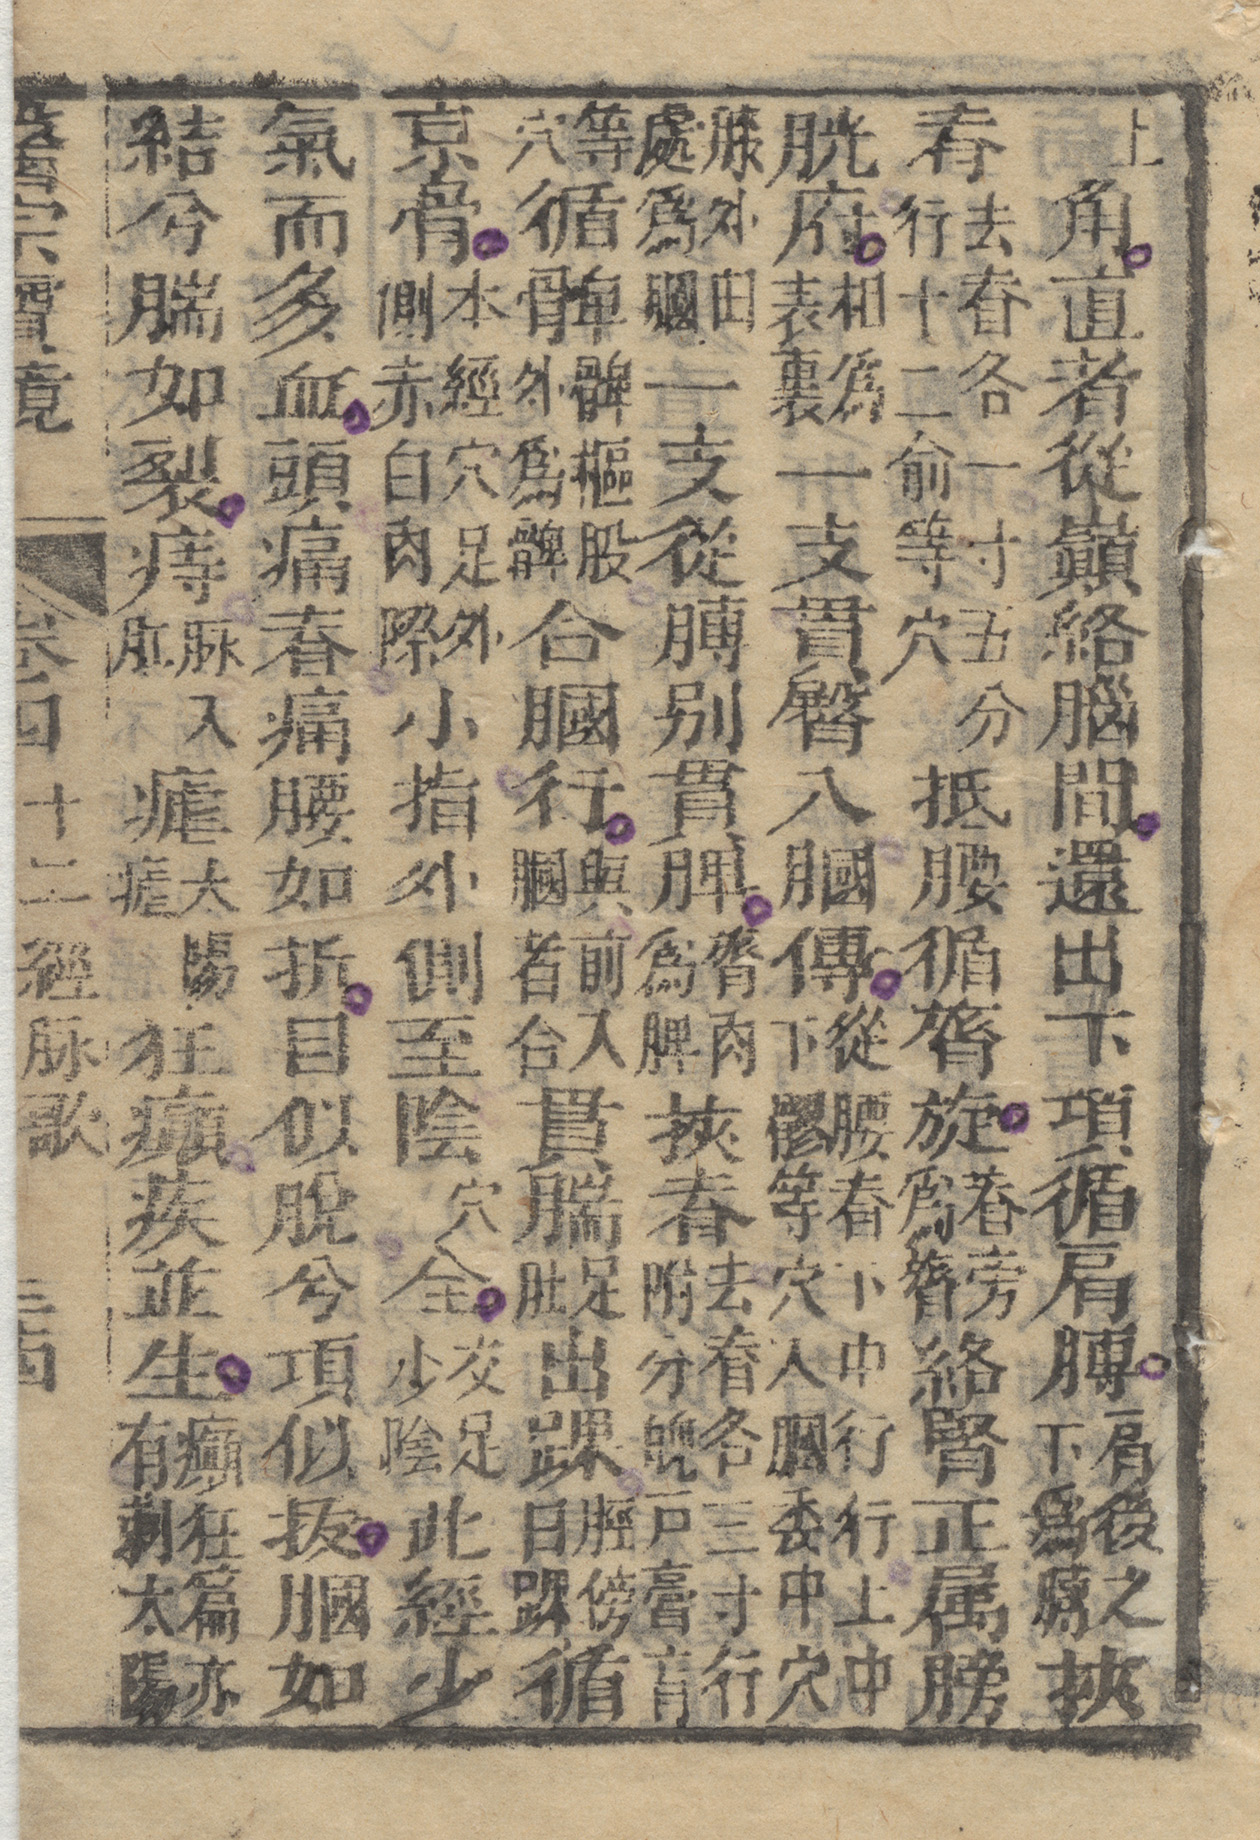 上角直者從巔絡腦間還出下項循肩膊肩後之下爲膊挾
脊去脊各一寸五分行十二俞等穴抵腰循膂旋脊旁爲膂絡腎正属膀
胱府相爲表裏一支貫臀入膕傳從腰脊下中行行上中下髎等穴入膕委中穴
膝外田處爲膕一支從膊別貫胛膂肉爲胛挾脊去脊各三寸行附分魄戶膏肓
等穴循髀髀樞股骨外爲髀合膕行與前入膕者合貫腨足肚出踝脛傍曰踝循
京骨本經穴足外側赤白肉際小指外側至陰穴全交足少陰此經少
氣而多血頭痛脊痛腰如折目似脫兮項似拔膕如
結兮腨如裂痔脉入肛瘧大陽瘧狂癲疾並生癲狂篇亦有刺太陽
醫宗寶鏡 卷四 十二經脉歌 三四